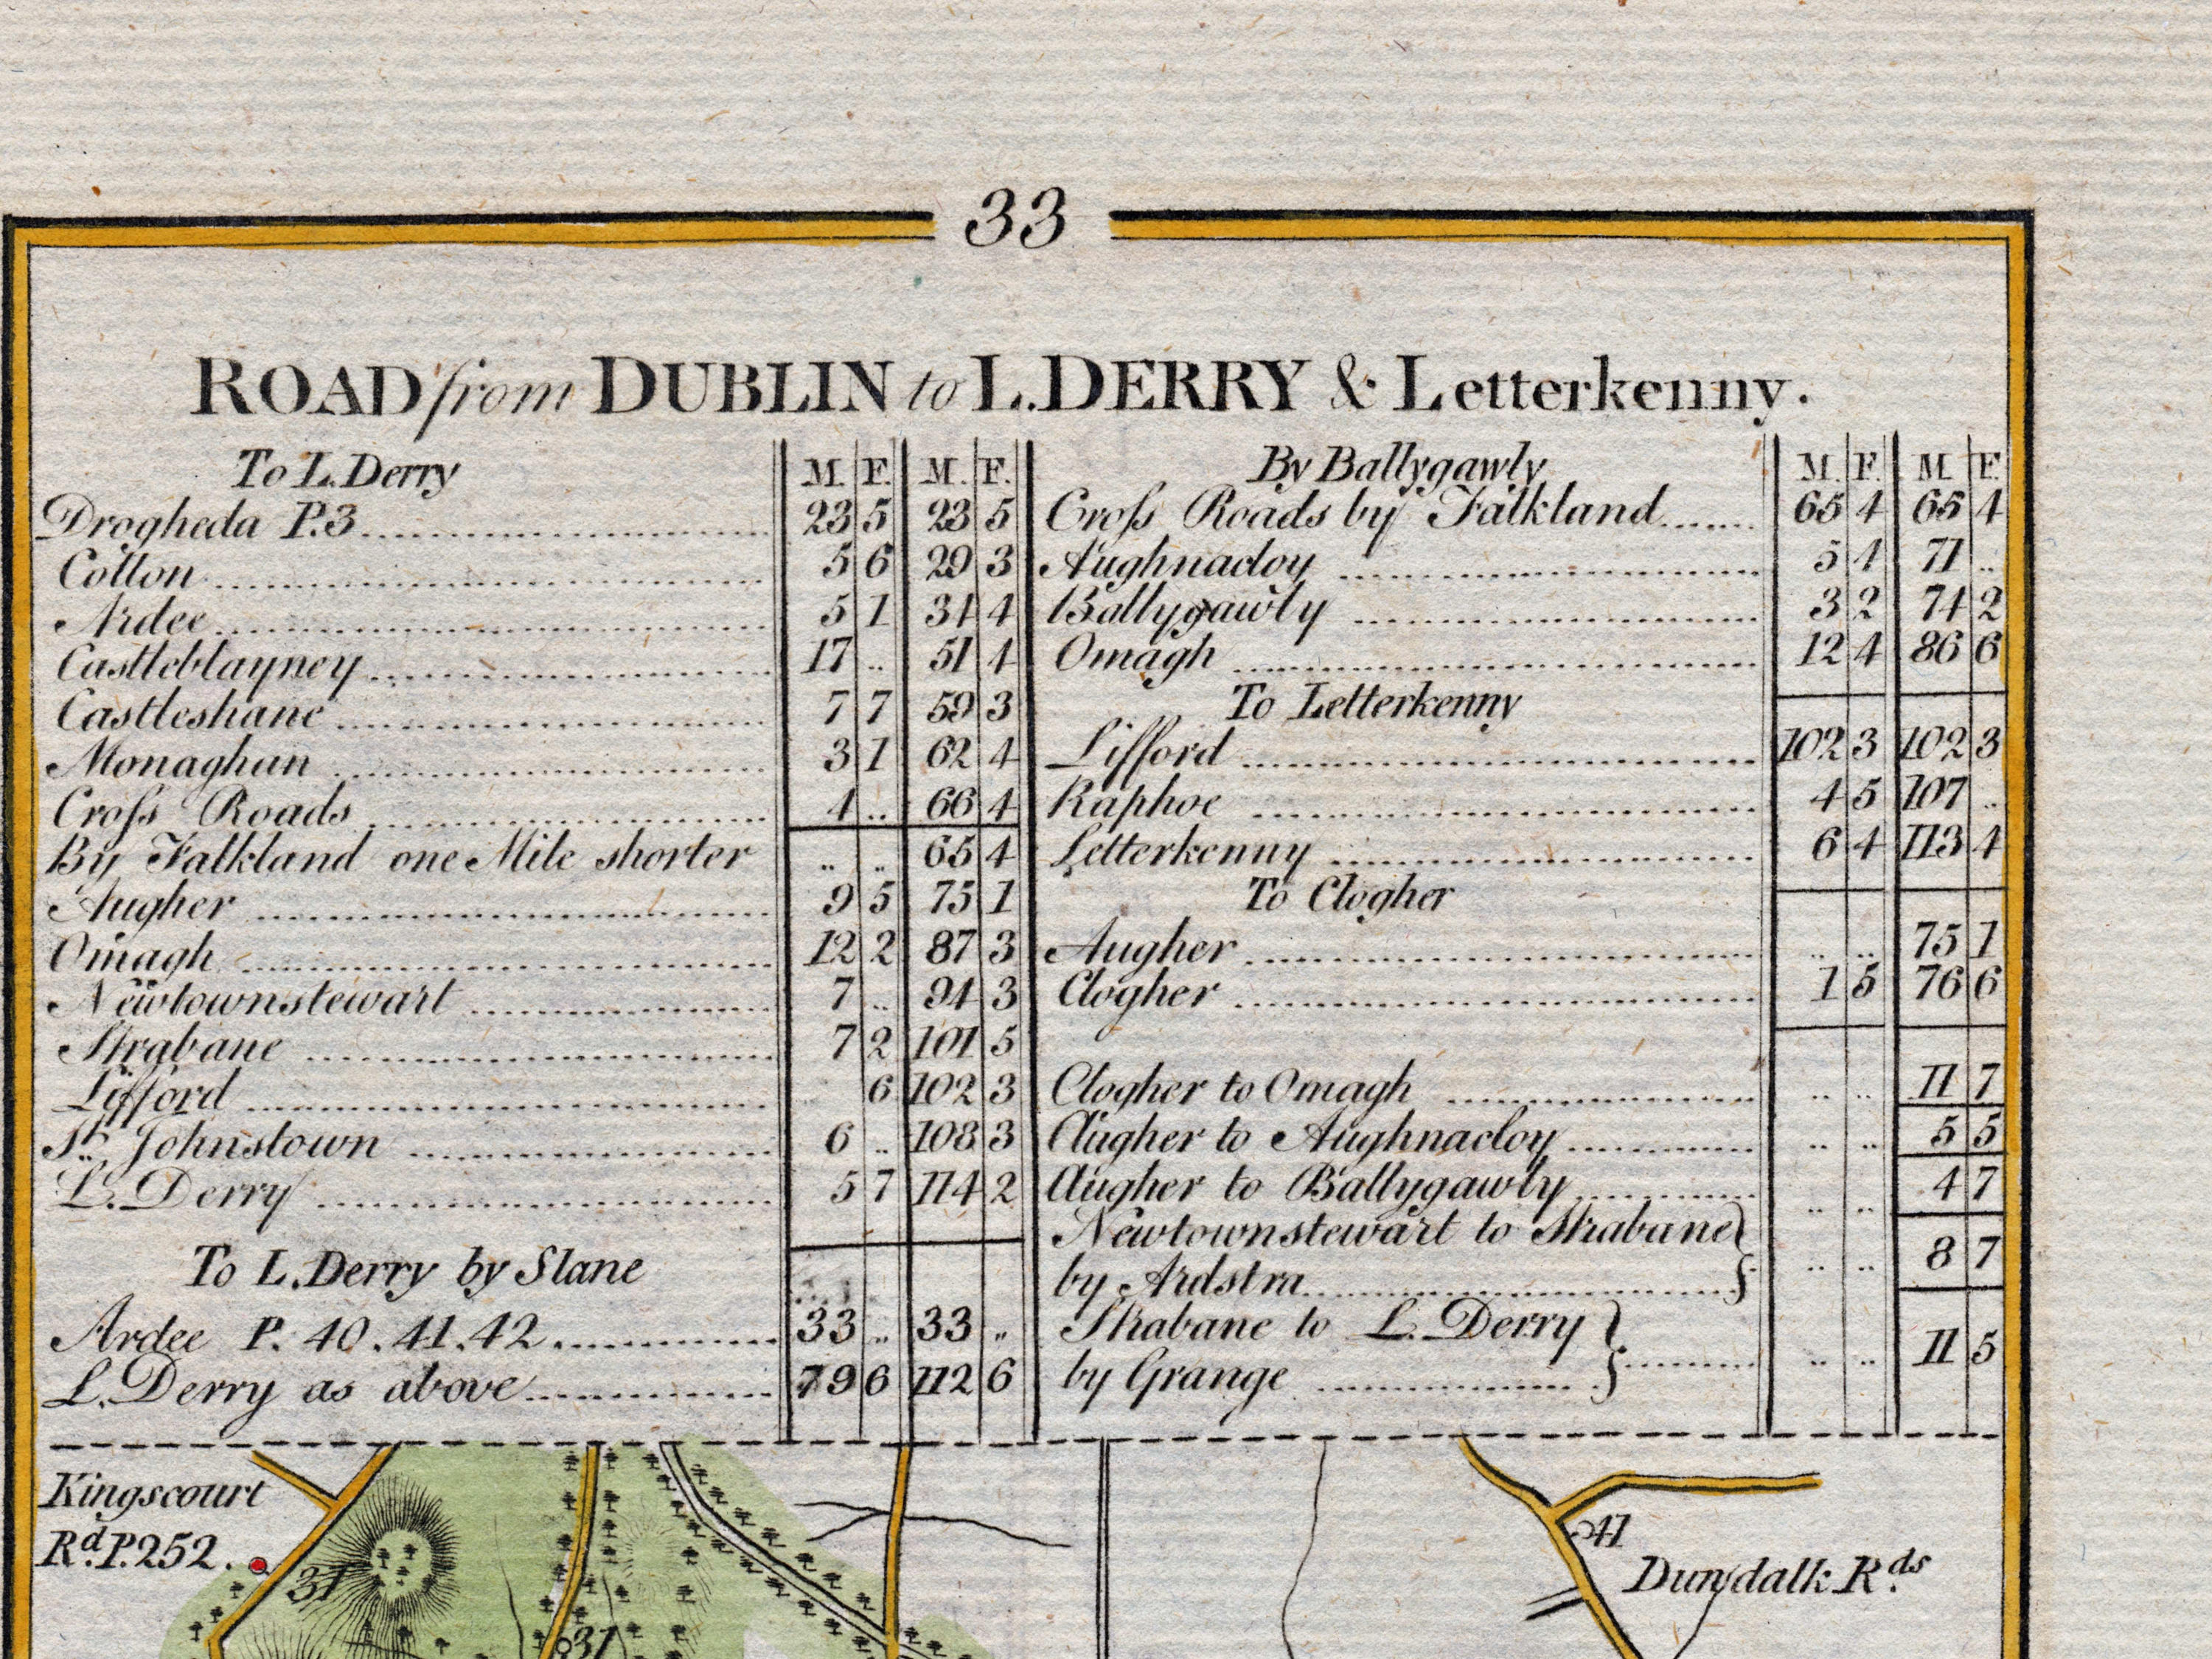 33
ROAD from DUBLIN to L.DERRY & Letterkenny.
To L.Derry M. F. M. F.
Drogheda P.3 23 5 23 5
Collon 5 6 29 3
Ardee 5 1 34 4
Castleblayney 17 .. 51 4
Castleshane 7 7 59 3
Monaghan 3 1 62 4
Croſs Roads 4 .. 66 4
By Falkland one Mile shorter .. .. 65 4
Augher 9 5 75 1
Omagh 12 2 87 3
Newtownstewart 7 .. 94 3
Strabane 7 2 101 5
Lifford 6 102 3
St. Johnstown 6 .. 108 3
L.Derry 5 7 114 2
To L.Derry by Slane
Ardee P. 40.41.42 33 .. 33 ..
L.Derry as above 79 6 112 6
By Ballygawly M. F. M. F.
Croſs Roads by Falkland 65 4 65 4
Aughnacloy 5 4 71 ..
Ballygawly 3 2 74 2
Omagh 12 4 86 6
To Letterkenny
Lifford 102 3 102 3
Raphoe 4 5 107 ..
Letterkenny 6 4 113 4
To Clogher
Augher .. .. 75 1
Clogher 1 5 76 6
Clogher to Omagh .. .. 11 7
Augher to Aughnacloy .. .. 5 5
Augher to Ballygawly .. .. 4 7
Newtownstewart to Strabane
by Ardstra .. .. 8 7
Strabane to L.Derry
by Grange .. .. 11 5
Kingscourt
Rd. P.252.
31
31
41
Dundalk Rds.